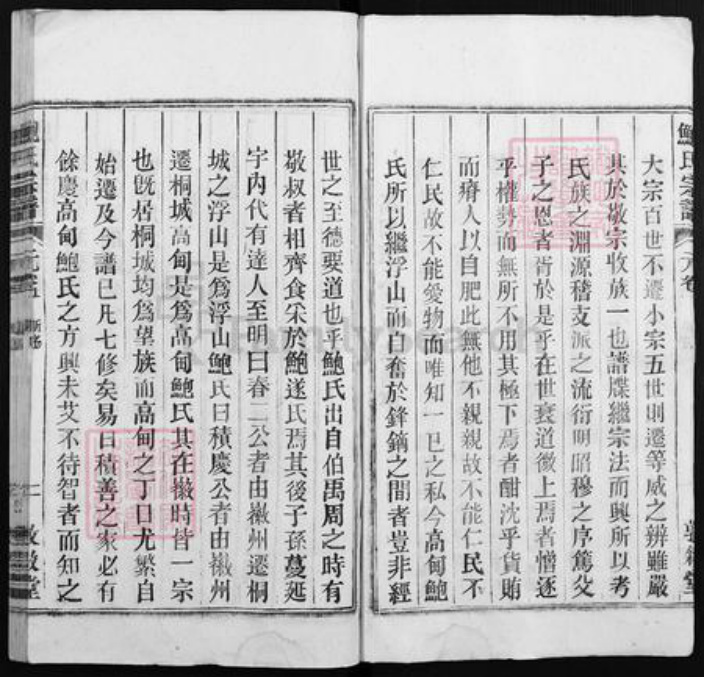 大宗百世不遷小宗五世則遷等威之辨雖嚴
其於敬宗收族一也譜牒繼宗法而興所以考
氏族之淵源稽支派之流衍明昭穆之序篤父
子之恩者胥於是乎在世衰道微上焉者憎逐
乎權勢而無所不用其極下焉者酣沈乎貨賄
而瘠人以自肥此無他不親親故不能仁民不
仁民故不能愛物而唯知一己之私今高甸鮑
氏所以繼浮山而自奮於鋒鏑之間者豈非經
世之至德要道也乎鮑氏出自伯禹周之時有
敬叔者相齊食宋於鮑遂氏焉其後子孫蔓延
宇內代有達人至明曰春二公者由徽州遷桐
城之浮山是爲浮山鮑氏曰積慶公者由徽州
遷桐城高甸是爲高甸鮑氏其在徽時皆一宗
也旣居桐城均爲望族而高甸之丁口尤繁自
始遷及今譜已凡七修矣易曰積善之家必有
餘慶高甸鮑氏之方興未艾不待智者而知之
鮑氏宗譜
元卷
敦敘堂